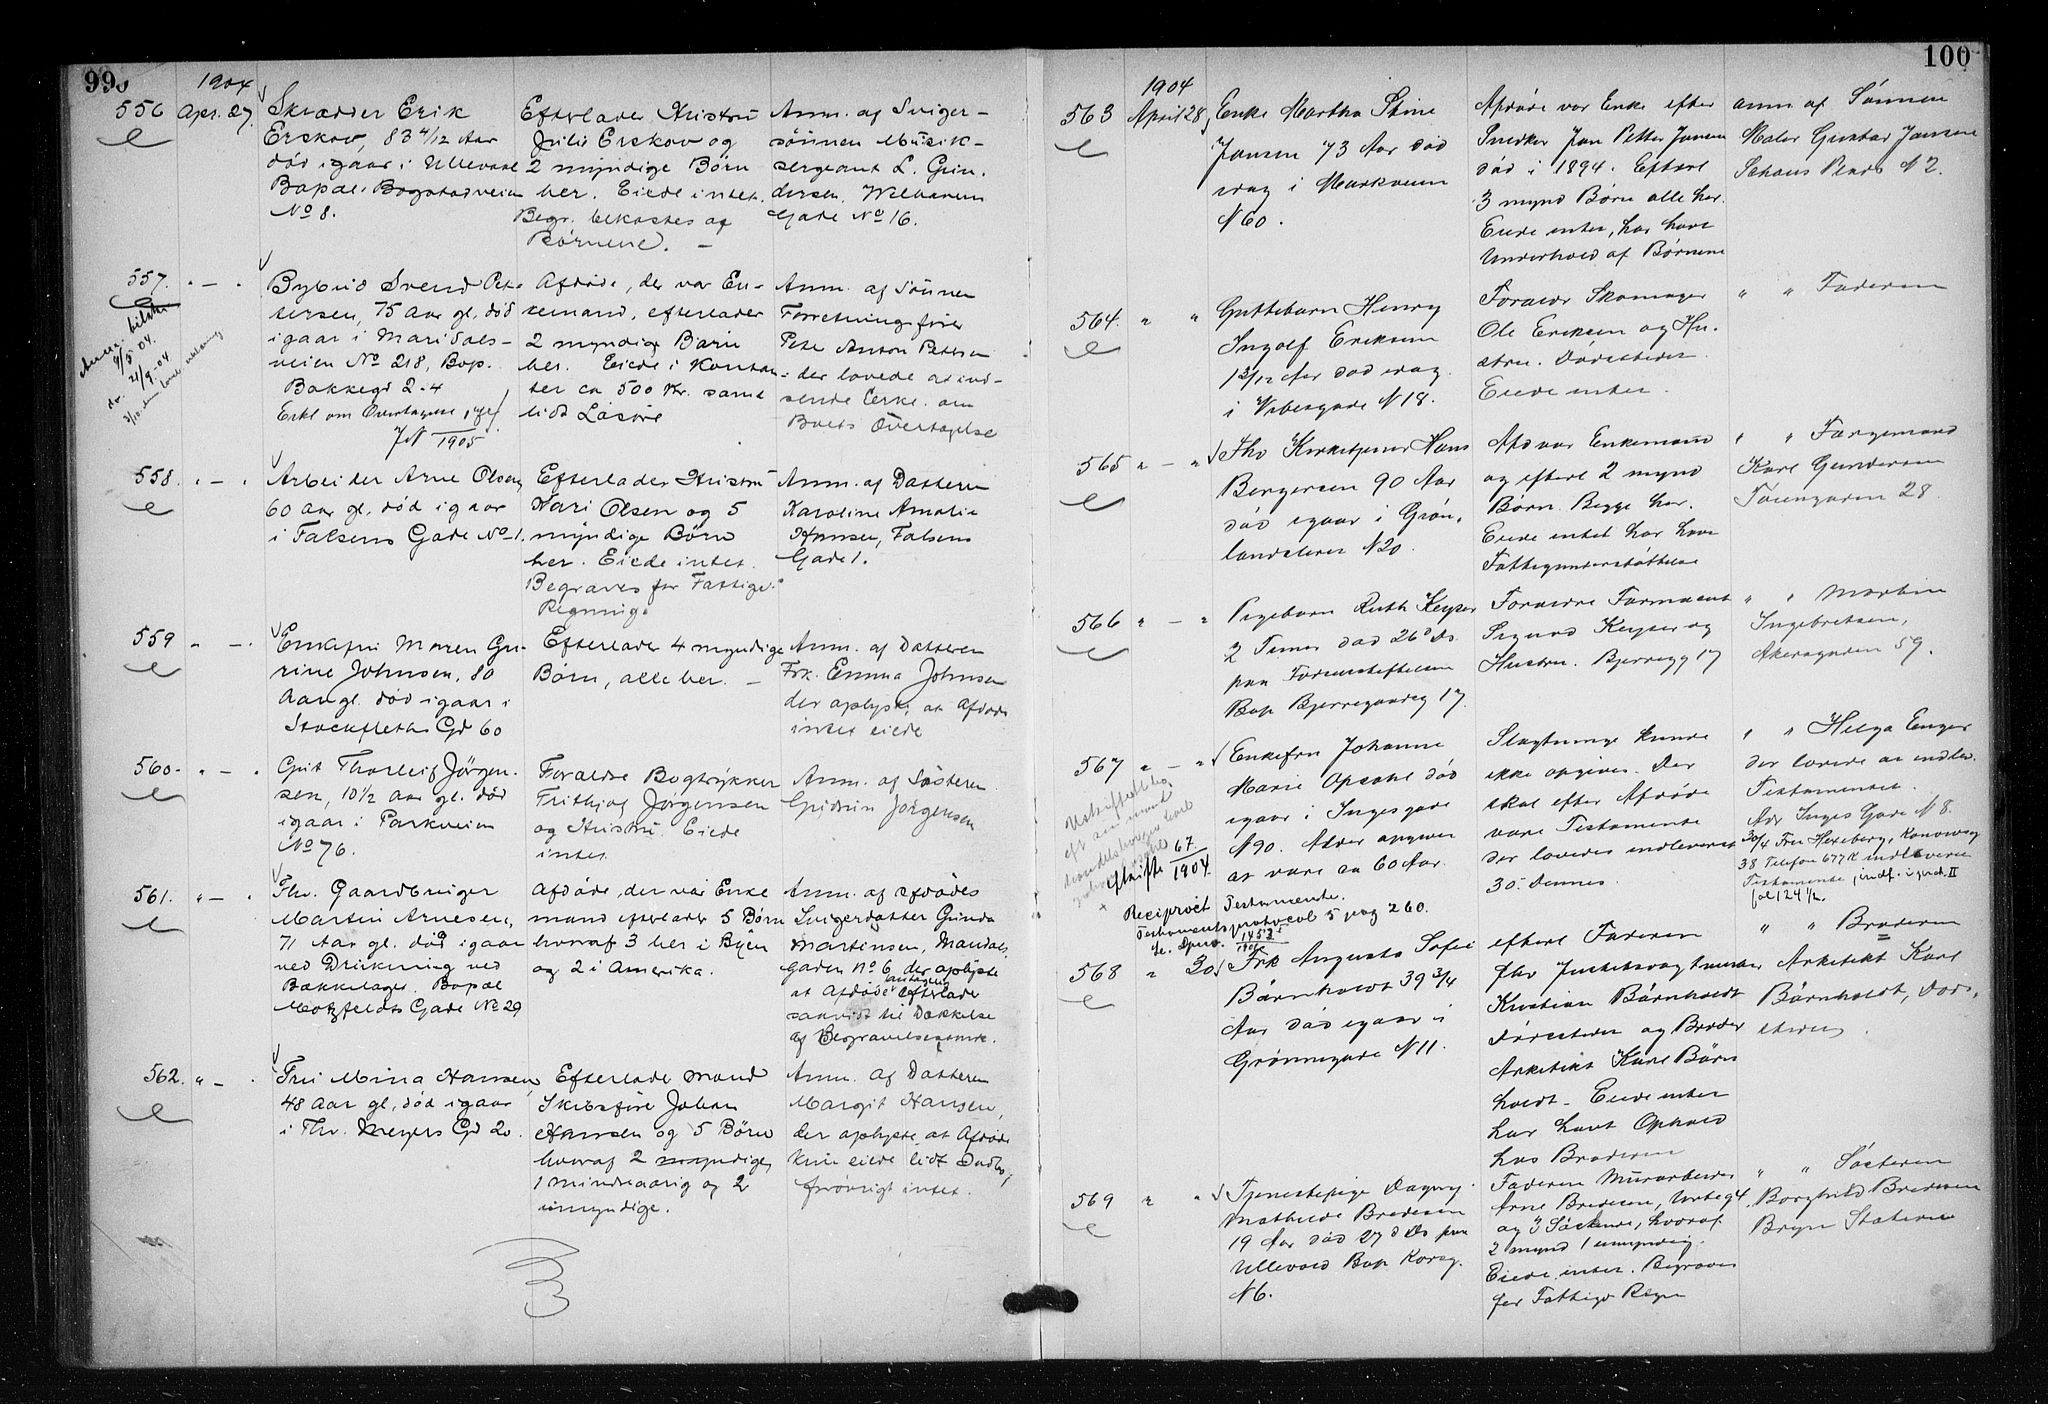 99
1904
556 Apr. 27.
Skrædder Erik
Erskov, 83 4/12 Aar
død igaar i Ullevaal
Bopæl Bogstadveien
No 8.
Efterlader Hustru
Julie Erskov og
2 myndige Børn
her. Eiede intet.
Begr. bekostes af
Børnene. –
Anm. af Sviger-
sønnen Musik-
sergeant L. Gun-
dersen, Welhavens
Gade No 16.
557. " — "
Bybud Svend Pet-
tersen, 75 Aar gl. død
igaar i Maridals-
veien No 218, Bop.
Bakkegd 2-4
Erkl om Overtagelse
JN 1905
Afdøde, der var En-
kemand, efterlader
2 myndige Børn
her. Eiede i Kontan-
ter ca 500 Kr. samt
lidt Løsøre
Anm. af Sønnen
Forretningsfører
Anton Petersen
der lovede at ind-
sende Erkl. om
Boets Overtagelse
4/5-04.
21/9-04
558. " — "
Arbeider Arne Olsen,
60 Aar gl. død igaar
i Falsens Gade No 1.
Efterlader Hustru
Kari Olsen og 5
myndige Børn
her. Eiede intet.
Begraves for Fattig.
Regning.
Anm. af Datteren
Karoline Amalie
Hansen, Falsens
Gade 1.
559 " — "
Enkefru Maren Gu-
rine Johnsen, 80
Aar gl. død igaar i
Stockfleths Gd 60
Efterlader 4 myndige
Børn, alle her. –
Anm. af Datteren
Frk. Emma Johnsen
der oplyste, at Afdøde
intet eiede
560. " — "
Gut Thorleif Jørgen-
sen, 10½ Aar gl. død
igaar i Parkveien
No 76.
Forældre Bogtrykker
Frithjof Jørgensen
og Hustru. Eiede
intet
Anm. af Søsteren
Jørgensen
561. " — "
Fhv. Gaardbruger
Martin Arnesen,
71 Aar gl. død igaar
ved Drukning ved
Bækkelaget. Bopæl
Motzfeldts Gade No 29
Afdøde, der var Enke
mand efterlader 5 Børn
hvoraf 3 her i Byen
og 2 i Amerika.
Anm. af Afdødes
Svigerdatter Gunda
Martinsen, Mandals
Gaden No 6, der oplyste
at Afdøde antagelig efterlade
saavidt til Dækkelse
af Begravelsesomk.
562. " — "
Fru Mina Hansen,
48 Aar gl. død igaar
i Thv. Meyers Gd 20.
Efterlade Mand
Skibsfører Johan
Hansen og 5 Børn
hvoraf 2 myndige,
1 mindreaarig og 2
umyndige.
Anm. af Datteren
Margit Hansen,
der oplyste, at Afdøde
kun eiede lidt Indbo,
forøvrigt intet.
100
1904
563 April 28
Enke Martha Stine
Jansen 73 Aar død
idag i Markveien
N 60.
Afdøde var Enke efter
Snedker Jan Petter Jansen
død i 1894. Efterl
3 mynd Børn alle her.
Eiede intet, har havt
Underhold af Børnene
anm af Sønnen
Maler Gustav Jansen
Schous Plads N 2.
564. " "
Guttebarn Henry
Ingolf Eriksen
1 3/12 Aar død idag
i Urtegade N 18.
Forældr Skomager
Ole Eriksen og Hu-
stru. Dødsstedet.
Eiede intet.
" " Faderen
565 " — "
Fhv Kirketjener Hans
Bergersen 90 Aar
død igaar i Grøn-
landsleret N 20.
Afd var Enkemand
og efterl 2 mynd
Børn. Begge her.
Eiede intet har havt
Fattigunderstøttelse
" " Fargemand
Karl Gundersen
28.
566 " — "
Pigebarn Ruth Keyser
2 Timer død 26d Ds.
paa Fødselsstiftelsen
Bop Bjerregaardsg 17.
Forældre Farmaceut
Sigurd Keyser og
Hustru. Bjerregg 17
" " Martin
Ingebretsen,
Akersgaden 59.
567 " — "
Enkefru Johanne
Marie Opsahl død
igaar i Inges gade
N 90. Alder opgiven
at være ca 60 Aar.
Slagtninge kunde
ikke opgives. Der
skal efter Afdøde
være Testamente
der lovedes indleveret
30. Dennes.
" " Helga Enger
der lovede at indlev.
Testamentet.
Adr Inges Gade N 8.
30/4 Fru Hexeberg, Kanonvey
38 Telefon 677K indleverede
Testamente, indf. i prot. II
fol 124½.
Skifte 67/1904.
Reciprocit Testamente.
Testamentsprotocol 5 pag 260.
568 " 30.
Frk Augusta Sofie
Bårnholdt 39 3/4
Aar død igaar i
Grønnegade N 11.
efterl Faderen
fhv
Kristian Bårnholdt
Dødsstedet og Broder
Arkitekt Karl Bårn
holdt. Eiede intet
har havt Ophold
hos Broderen
" " Broderen
Arkitekt Karl
Bårnholdt, Døds-
stedet.
569 " "
Tjenestepige Dagny
Mathilde Bredesen
19 Aar død 27d Ds paa
Ullevold Bop Korsg.
N 6.
Faderen Murarbeider
Arne Bredesen, Urteg 4
og 3 Søskende, hvoraf
2 mynd 1 umyndig.
Eiede intet. Begraves
for Fattigv Regn
" " Søsteren
Borghild Bredesen
Bryn Station